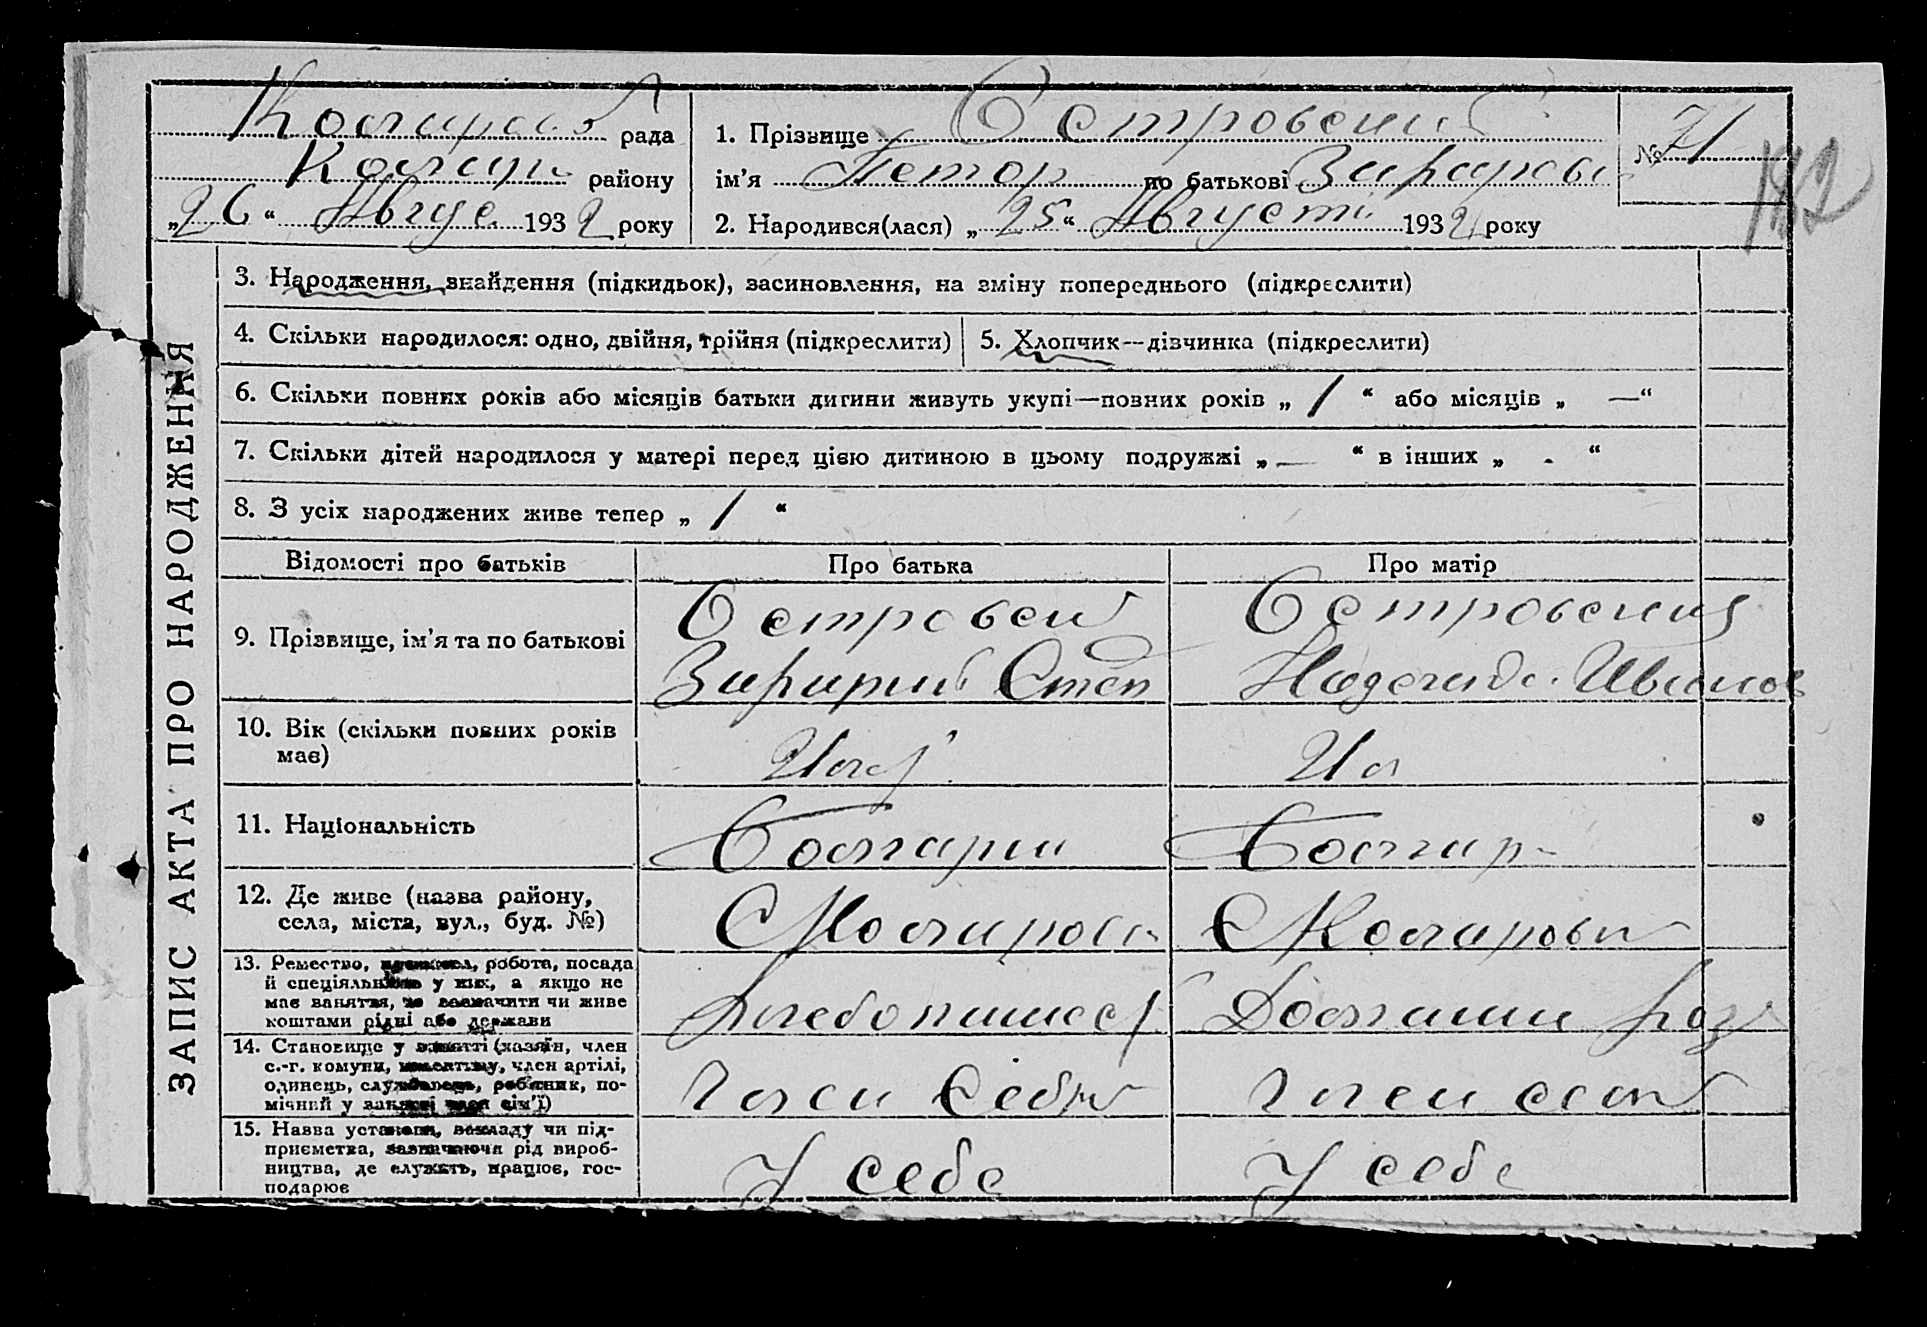 рада
району
„26“ Авгус 1932 року
1. Прізвище Островский
ім’я Петор по батькові
2. Народився(лася) „25“ Августа 1932 року
№ 71
182
ЗАПИС АКТА ПРО НАРОДЖЕННЯ
3. Народження, знайдення (підкидьок), засиновлення, на зміну попереднього (підкреслити)
4. Скільки народилося: одно, двійня, трійня (підкреслити)
5. Хлопчик—дівчинка (підкреслити)
6. Скільки повних років або місяців батьки дитини живуть укупі—повних років „ 1 “ або місяців „ —“
7. Скільки дітей народилося у матері перед цією дитиною в цьому подружжі „ — “ в інших „ - “
8. З усіх народжених живе тепер „ 1 “
Відомості про батьків
Про батька
Про матір
9. Прізвище, ім’я та по батькові
Островски
Степ
Островская
Надежда Иванов
10. Вік (скільки повних років
має)
11. Національність
Болгарин
Болгар
12. Де живе (назва району,
села, міста, вул., буд. №)
13. Ремество, робота, посада
й спеціяльність у них, а якщо не
має заняття, то зазначити чи живе
коштами рідні або держави
Хлебопашест
Домашни хоз
14. Становище у занятті (хазяїн, член
с.-г. комуни, член артілі,
одинець, службовець, робітник, по-
мічний у занятті сім’ї)
член
член
15. Назва установи, закладу чи під-
приємства, зазначаючи рід вироб-
ництва, де служить, працює, гос-
подарює
У себе
У себе